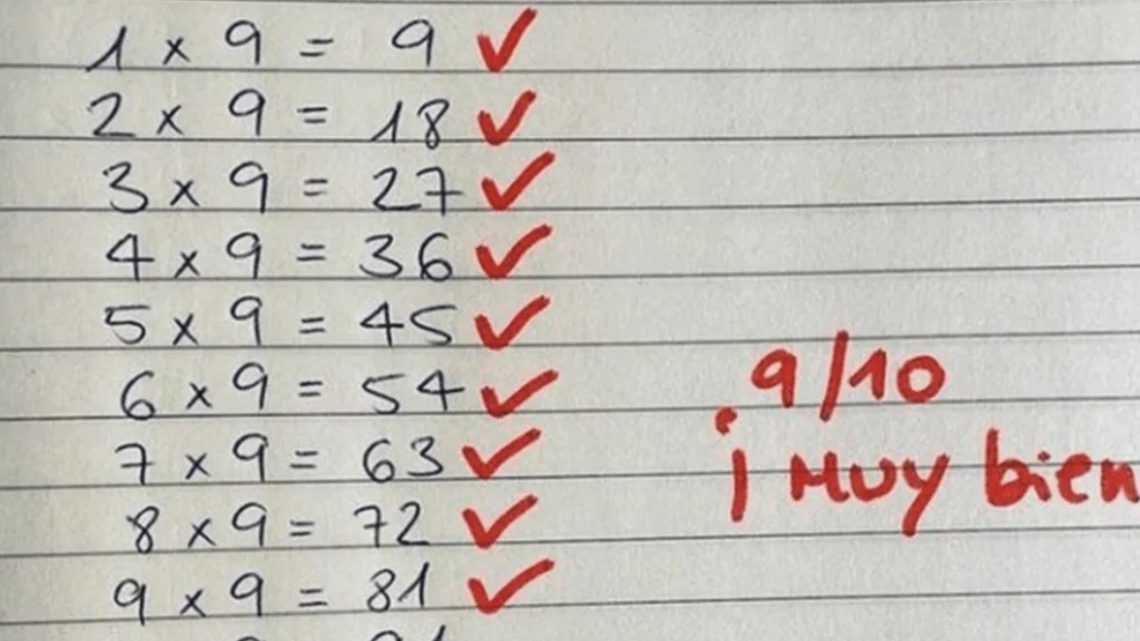 1 x 9 = 9 ✓
2 x 9 = 18 ✓
3 x 9 = 27 ✓
4 x 9 = 36 ✓
5 x 9 = 45 ✓
6 x 9 = 54 ✓
7 x 9 = 63 ✓
8 x 9 = 72 ✓
9 x 9 = 81 ✓
9/10
¡Muy bien